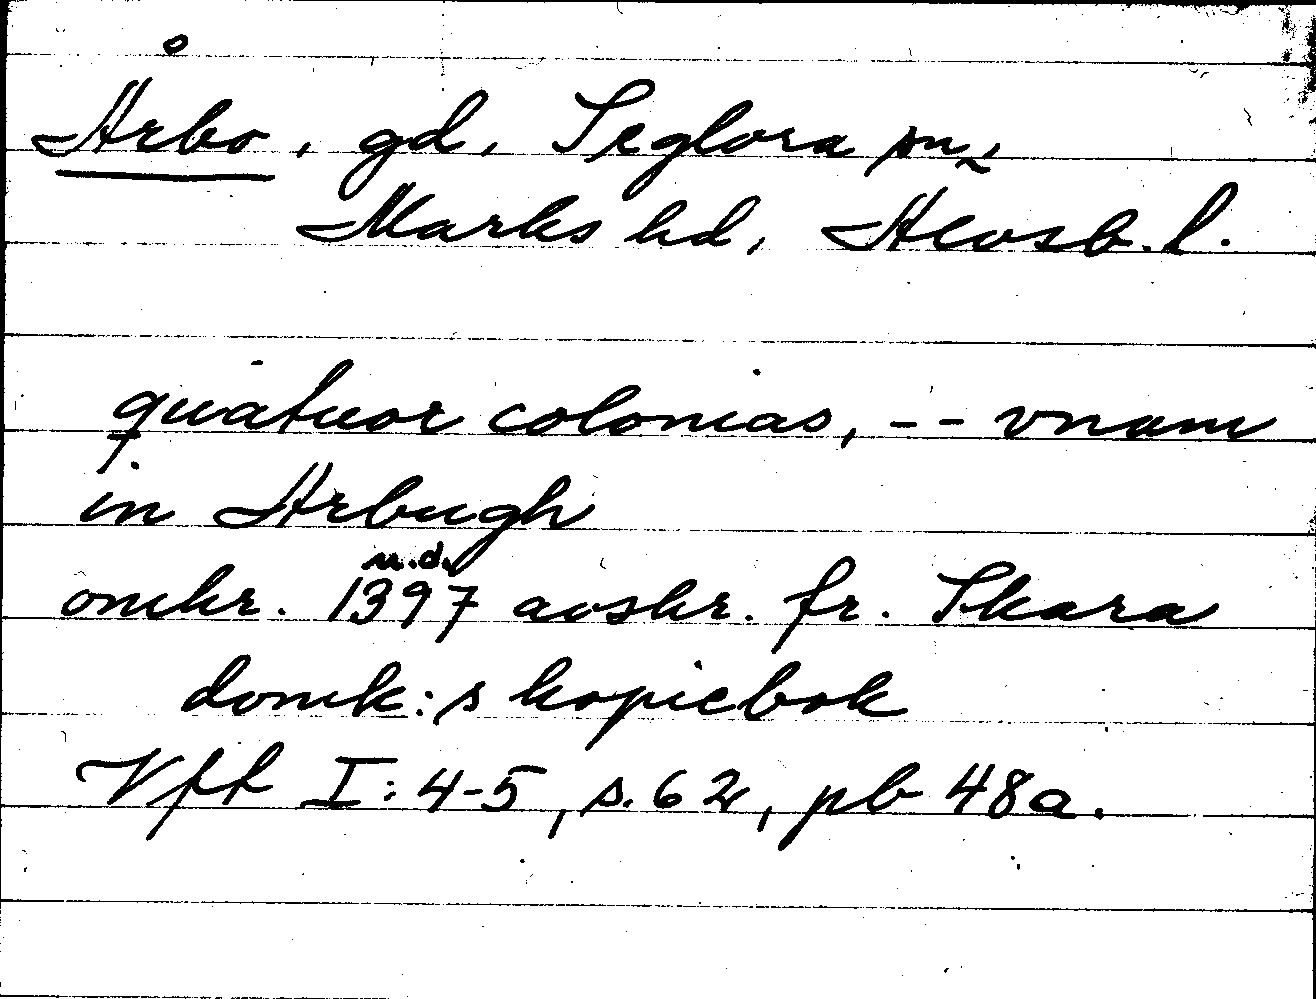 Årbo, gd, Seglora sn,
Marks hd, Älvsb. l.
quatuor colonias, -- vnam
in Arbugh
omkr. 1397 u.d. avskr. fr. Skara
domk:s kopiebok
Vft I:4-5, s. 62, pb 48a.